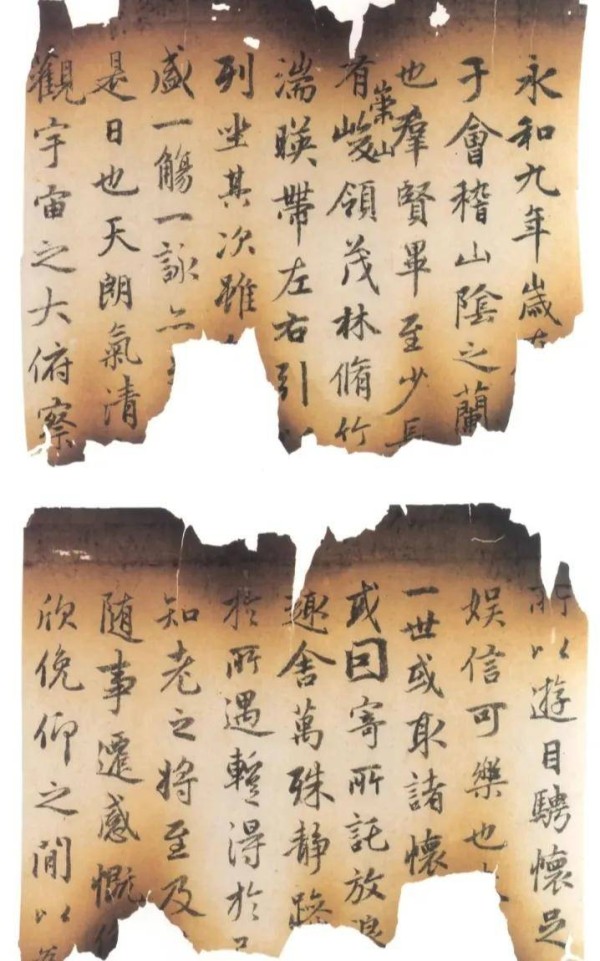 永和九年歲
于會稽山陰之蘭
也羣賢畢至少長
有崇山峻領茂林脩竹
湍暎帶左右引
列坐其次雖
盛一觴一詠亦
是日也天朗氣清
觀宇宙之大俯察
所以遊目騁懷足
娛信可樂也
一世或取諸懷
或因寄所託放浪
趣舍萬殊靜躁
於所遇暫得於
知老之將至及
隨事遷感慨
欣俛仰之間以